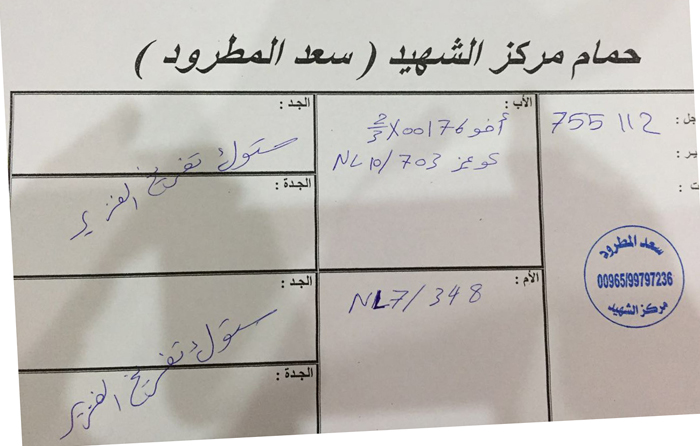 حمام مركز الشهيد ( سعد المطرود )
جل :
755 112
ير :
ت :
سعد المطرود
00965/99797236
مركز الشهيد
الأب :
أخو X00176 2/3
كوعز NL10/703
الأم :
NL7/348
الجد :
ستوك تفريخ الغزير
الجدة :
الجد :
ستوك تفريخ الغزير
الجدة :